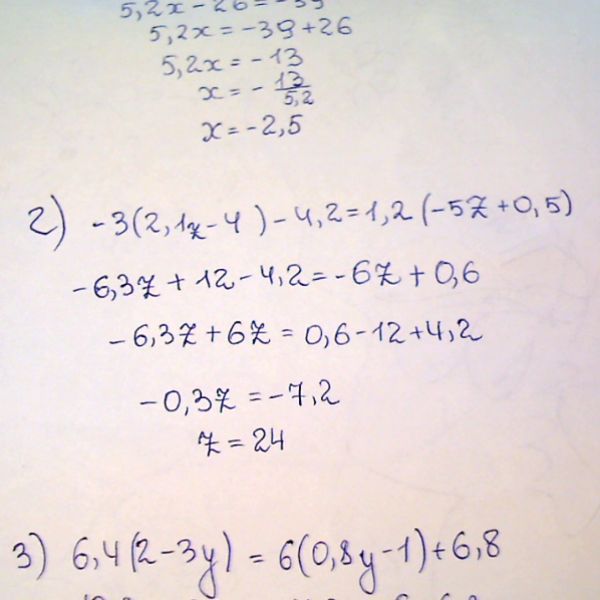 5,2x - 26 = -39
5,2x = -39+26
5,2x = -13
x = - 13/5,2
x = -2,5
2) -3(2,1z-4) -4,2=1,2(-5z+0,5)
-6,3z + 12-4,2=-6z + 0,6
-6,3z+6z = 0,6-12+4,2
-0,3z = -7,2
z = 24
3) 6,4(2-3y) = 6(0,8y-1)+6,8